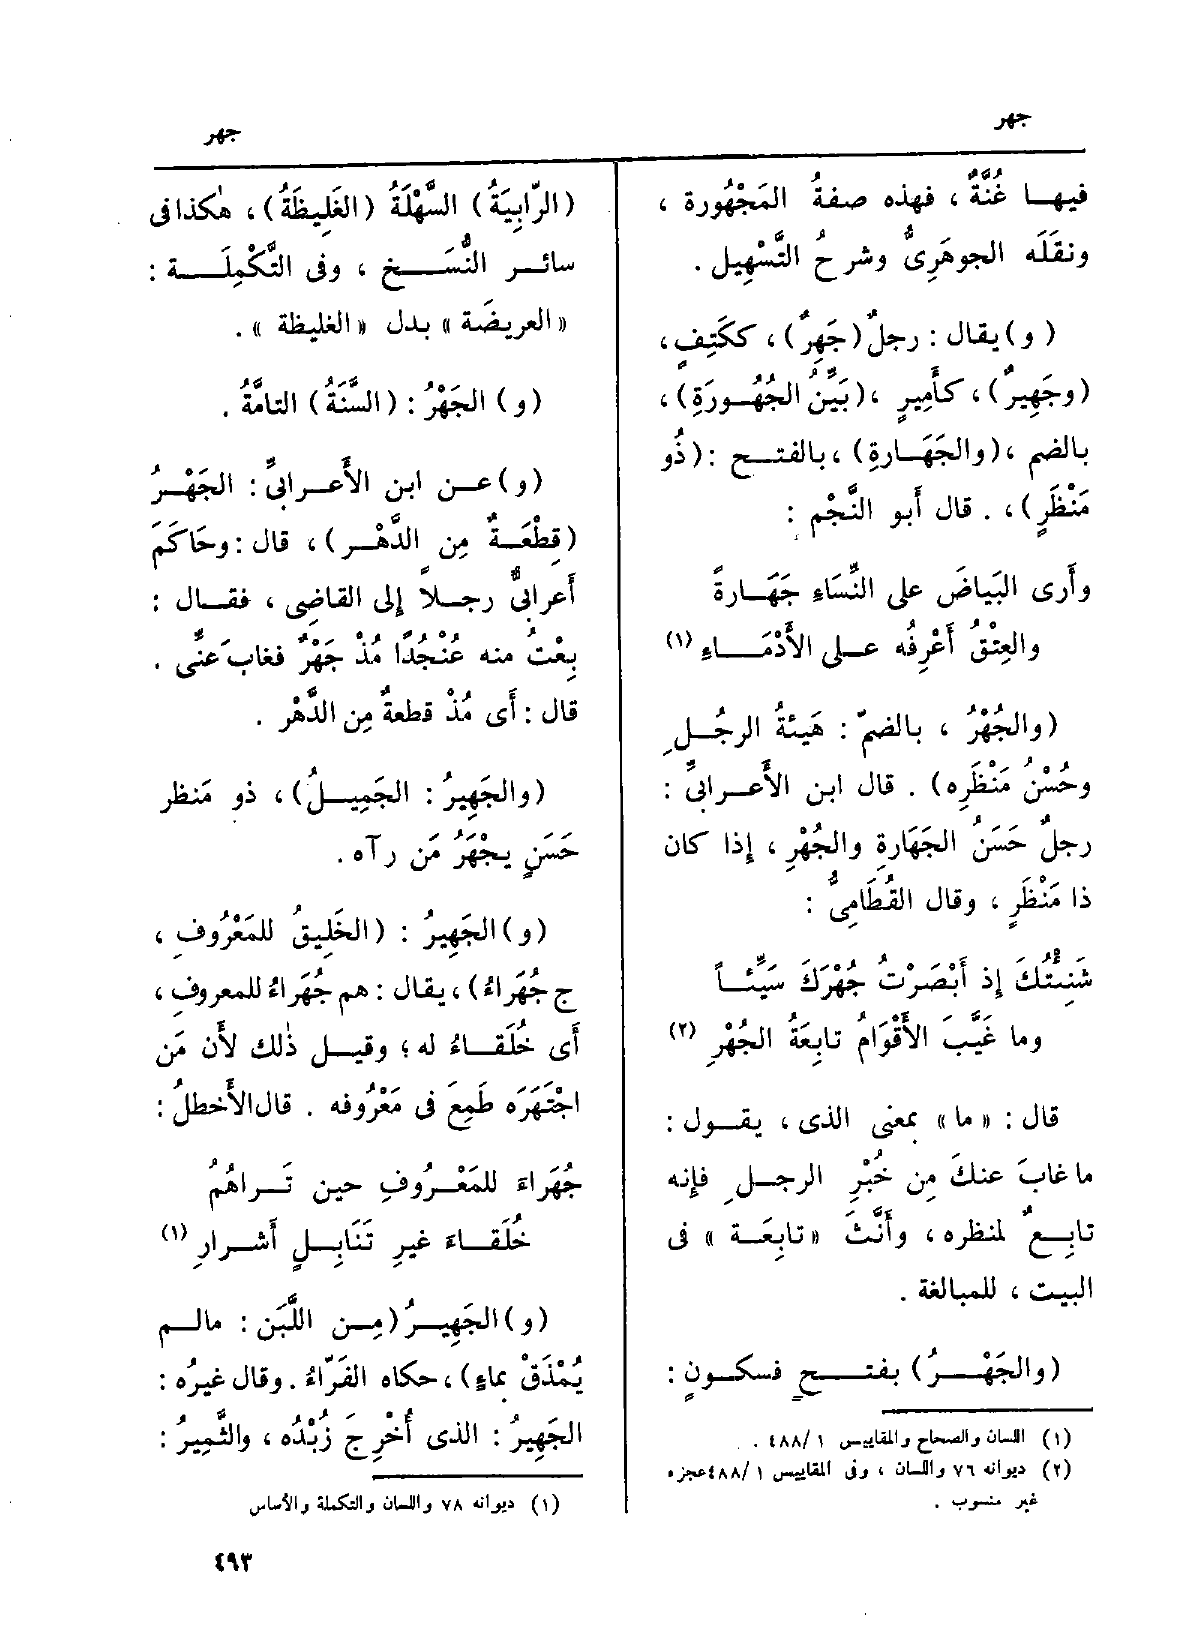 جهر
جهر
فيهـا غُنَّةٌ ، فهذه صفةُ المَجْهُورة ،
ونقَلَه الجوهَرِىُّ وشرحُ التَّسْهِيل .
( و) يقال : رجلٌ (جَهِرٌ) ، ككَتِفٍ ،
(وجَهِيرٌ) ، كأَمِيرٍ ، (بَيِّنُ الجُهُورَةِ) ،
بالضم ، (والجَهَارةِ) ، بالفتح : (ذُو
مَنْظَرٍ) ، . قال أَبو النَّجْم :
وأَرى البَيَاضَ على النِّسَاءِ جَهَارةً
والعِتْقُ أَعْرِفُه على الأَدْمَاءِ (١)
(والجُهْرُ ، بالضمّ : هَيئةُ الرجُلِ
وحُسْنُ مَنْظَرِه) . قال ابن الأَعرابىِّ :
رجلٌ حَسَنُ الجَهَارةِ والجُهْرِ ، إِذا كان
ذا مَنْظَرٍ ، وقال القُطَامِىُّ :
شَنِئْتُكَ إِذ أَبْصَرْتُ جُهْرَكَ سَيِّئاً
وما غَيَّبَ الأَقْوَامُ تابِعَةُ الجُهْرِ (٢)
قال : «ما» بمعنى الذى ، يقول :
ما غابَ عنكَ مِن خُبْرِ الرجلِ فإِنه
تابِعٌ لمنظره ، وأَنَّثَ «تابعَة» فى
البيت ، للمبالغة .
(والجَهْرُ) بفتحٍ فسكونٍ :
(١) اللسان والصحاح والمقاييس ١ /٤٨٨ .
(٢) ديوانه ٧٦ واللسان ، وفى المقاييس ١ /٤٨٨ عجزه
غير منسوب .
(الرّابِيَةُ) السَّهْلَةُ (الغَلِيظَةُ) ، هكذا فى
سائر النُّسَخ ، وفى التَّكْمِلَة :
«العريضَة» بدل «الغليظة» .
(و) الجَهْرُ : (السَّنَةُ) التامَّةُ .
(و) عن ابن الأَعرابىِّ : الجَهْرُ
(قِطْعَةٌ مِن الدَّهْرِ) ، قال : وحَاكَمَ
أَعرابىٌّ رجلاً إِلى القاضِى ، فقال :
بِعْتُ منه عُنْجُدًا مُذْ جَهْرٌ فغابَ عَنِّى .
قال : أَى مُذْ قطعةٌ مِن الدَّهْر .
(والجَهِيرُ : الجَمِيلُ) ، ذو مَنظر
حَسَنٍ يجْهَرُ مَن رآه .
(و) الجَهِيرُ : (الخَلِيقُ للمَعْرُوفِ ،
ج جُهَرَاءُ) ، يقال : هم جُهَرَاءُ للمعروفِ ،
أَى خُلَقاءُ له ؛ وقيل ذٰلك لأَن مَن
اجْتَهَرَه طَمِعَ فى مَعْرُوفه . قال الأَخطلُ :
جُهَرَاءَ للمَعْرُوفِ حين تَراهُمُ
خُلَقاءَ غيرِ تَنَابِلٍ أَشرارِ (١)
(و) الجَهِيرُ (مِن اللَّبَن : مالم
يُمْذَقْ بماءٍ) ، حكاه الفَرّاءُ . وقال غيرُه :
الجَهِيرُ : الذى أُخْرِجَ زُبْدُه ، والثَّمِيرُ :
(١) ديوانه ٧٨ واللسان والتكملة والأساس
٤٩٣